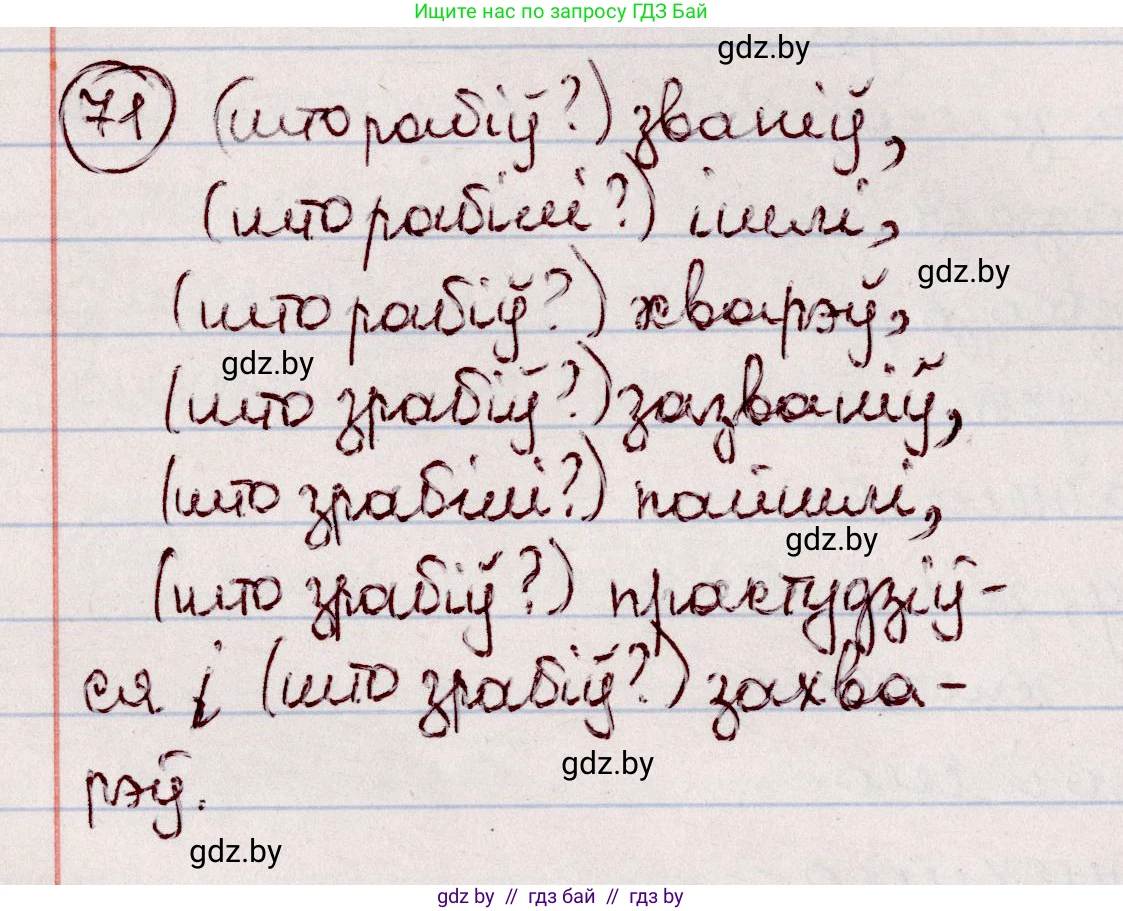 Ищите нас по запросу ГДЗ Бай
gdz.by
71 (што рабіў?) званіў,
(што рабілі?) ішлі,
gdz.by
(што рабіў?) хварэў,
gdz.by
(што зрабіў?) зазваніў,
(што зрабілі?) пайшлі,
gdz.by
(што зрабіў?) прастудзіў-
ся і (што зрабіў?) захва-
gdz.by
рэў.
gdz.by
gdz.by // гдз бай // гдз by